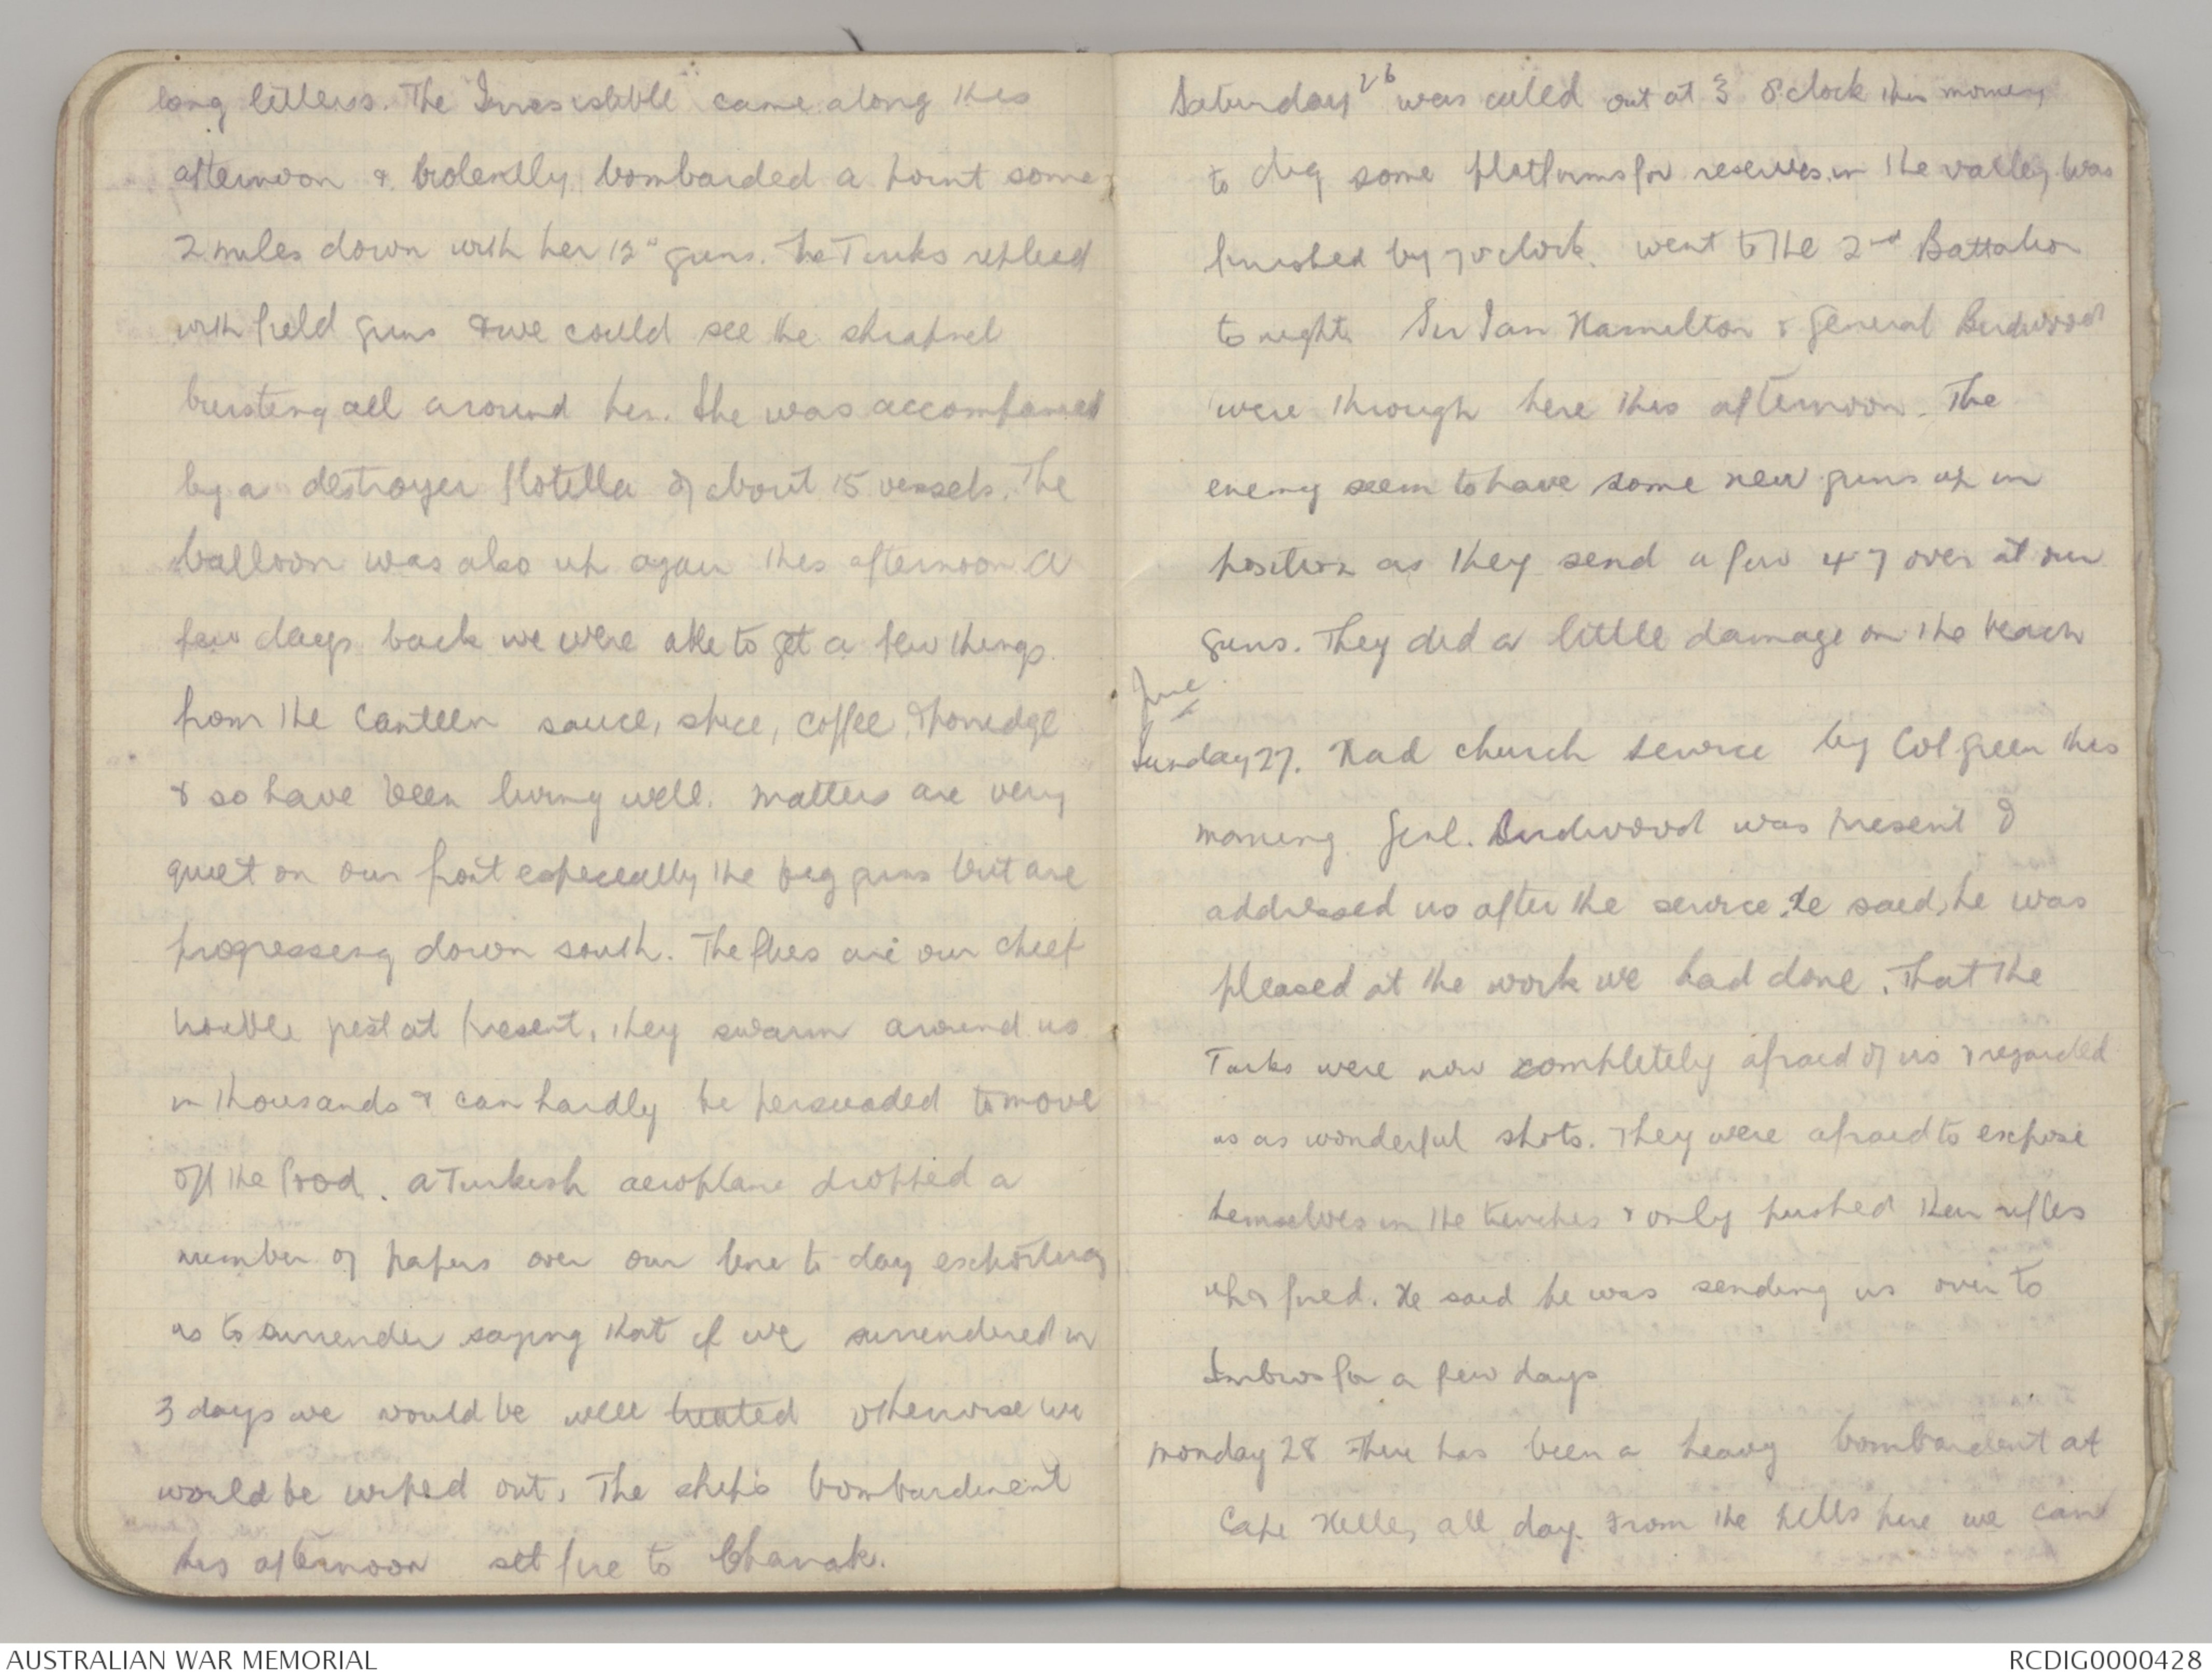 long letters. The "Irresistible" came along this
afternoon & violently bombarded a point some
2 miles down with her 12" guns. The Turks replied
with field guns & we could see the shrapnel
bursting all around her. She was accompanied
by a destroyer flotilla of about 15 vessels. The
balloon was also up again this afternoon. A
few days back we were able to get a few things
from the Canteen sauce, spice, coffee, & porridge
& so have been living well. Matters are very
quiet on our front especially the big guns but are
progressing down south. The flies are our chief
pest at present, they swarm around us
in thousands & can hardly be persuaded to move
off the food. A Turkish aeroplane dropped a
number of papers over our line to-day exhorting
us to surrender saying that if we surrendered in
3 days we would be well treated otherwise we
would be wiped out. The ships bombardment
this afternoon set fire to Chanak.
Saturday 26 was called out at 3 o'clock this morning
to dig some platforms for reserves in the valley. Was
finished by 7 o'clock. went to the 2nd Battalion
to night. Sir Ian Hamilton & General Birdwood
were through here this afternoon. The
enemy seem to have some new guns up in
position as they send a few 4.7 over at our
guns. They did a little damage on the beach
June
Sunday 27. Had church service by Col Green this
morning. Genl. Birdwood was present &
addressed us after the service. He said, he was
pleased at the work we had done. That the
Turks were now completely afraid of us & regarded
us as wonderful shots. They were afraid to expose
themselves in the trenches & only pushed their rifles
up & fired. He said he was sending us over to
Imbros for a few days
Monday 28 There has been a heavy bombardent at
Cape Helles, all day. From the hills here we can
AUSTRALIAN WAR MEMORIAL
RCDIG0000428